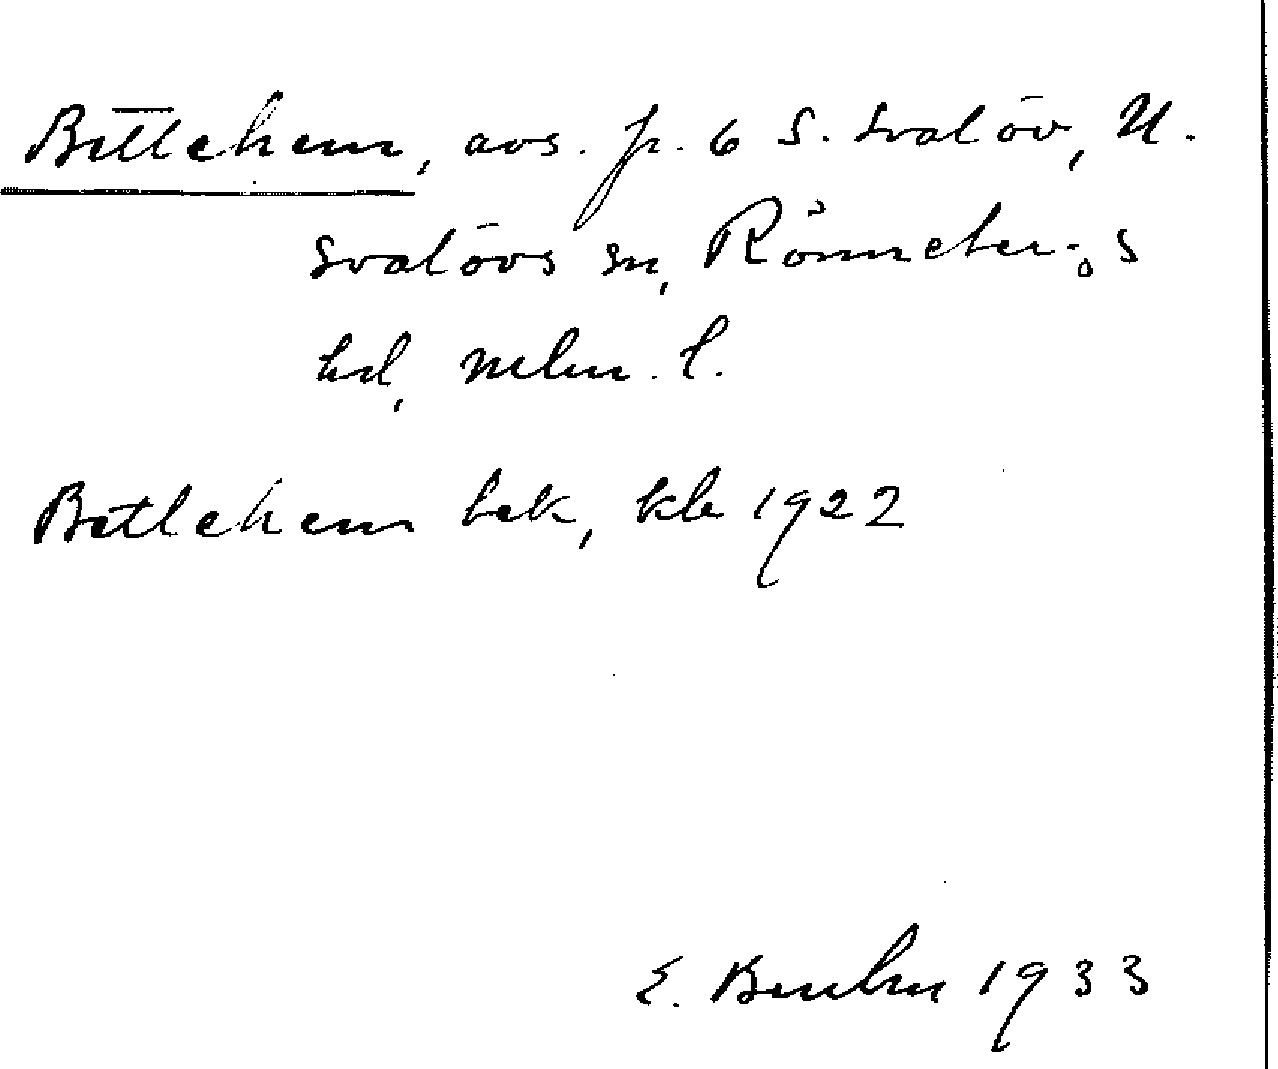 Betlehem, avs. fr. 6 S. Svalöv, U.
Svalövs sn, Rönnebergs
hd, Mlm. l.
Betlehem bek, kb 1922
E. 1933